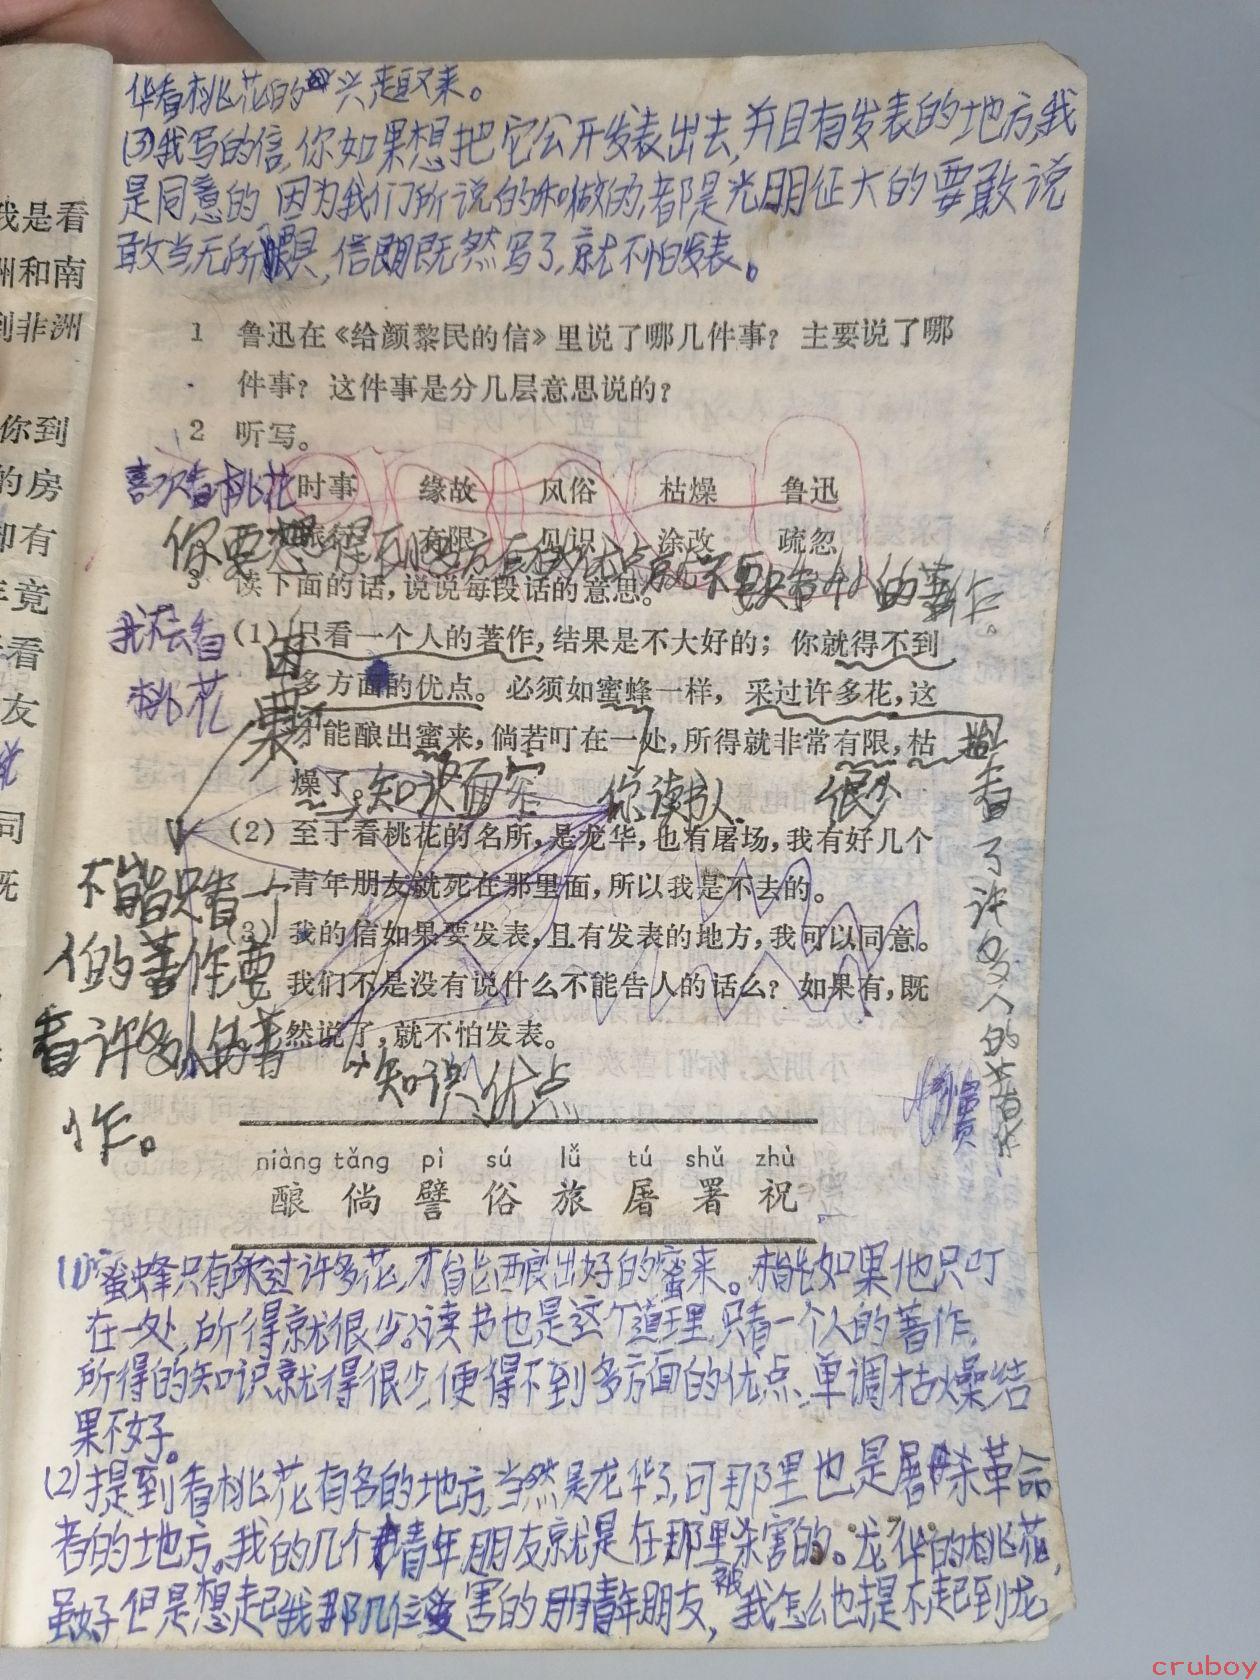 华看桃花的兴趣来。
(3)我写的信,你如果想把它公开发表出去,并且有发表的地方,我
是同意的 因为我们所说的和做的,都是光明征大的要敢说
敢当,无所畏具,信既然写了,就不怕发表。
我是看
洲和南
到非洲
你到
的房
却有
年竟
看
友
同
既
1 鲁迅在《给颜黎民的信》里说了哪几件事?主要说了哪
件事?这件事是分几层意思说的?
2 听写。
喜欢看桃花
时事 缘故 风俗 枯燥 鲁迅
旅行 有限 见识 涂改 疏忽
你要想得到多方面的优点就不要只看一个人的著作。
3 读下面的话,说说每段话的意思。
我不去看
桃花
因
果
(1) 只看一个人的著作,结果是不大好的;你就得不到
多方面的优点。必须如蜜蜂一样,采过许多花,这
才能酿出蜜来,倘若叮在一处,所得就非常有限,枯
燥了。
知识面窄 你读书 很少
看了许多人的著作
(2) 至于看桃花的名所,是龙华,也有屠场,我有好几个
青年朋友就死在那里面,所以我是不去的。
(3) 我的信如果要发表,且有发表的地方,我可以同意。
我们不是没有说什么不能告人的话么?如果有,既
然说了,就不怕发表。
不能只看一个
人的著作要
看许多人的著
作。
知识优点
niàng tǎng pì sú lǚ tú shǔ zhù
酿 倘 譬 俗 旅 屠 署 祝
(1)蜜蜂只有采过许多花,才能酿出好的蜜来。如果他只叮
在一处,所得就很少。读书也是这个道理,只看一个人的著作,
所得的知识就得很少,便得不到多方面的优点、单调枯燥结
果不好。
(2)提到看桃花有名的地方,当然是龙华了,可那里也是屠杀革命
者的地方。我的几个青年朋友就是在那里杀害的。龙华的桃花,
虽好,但是想起我那几位被害的青年朋友,我怎么也提不起到龙
cruboy